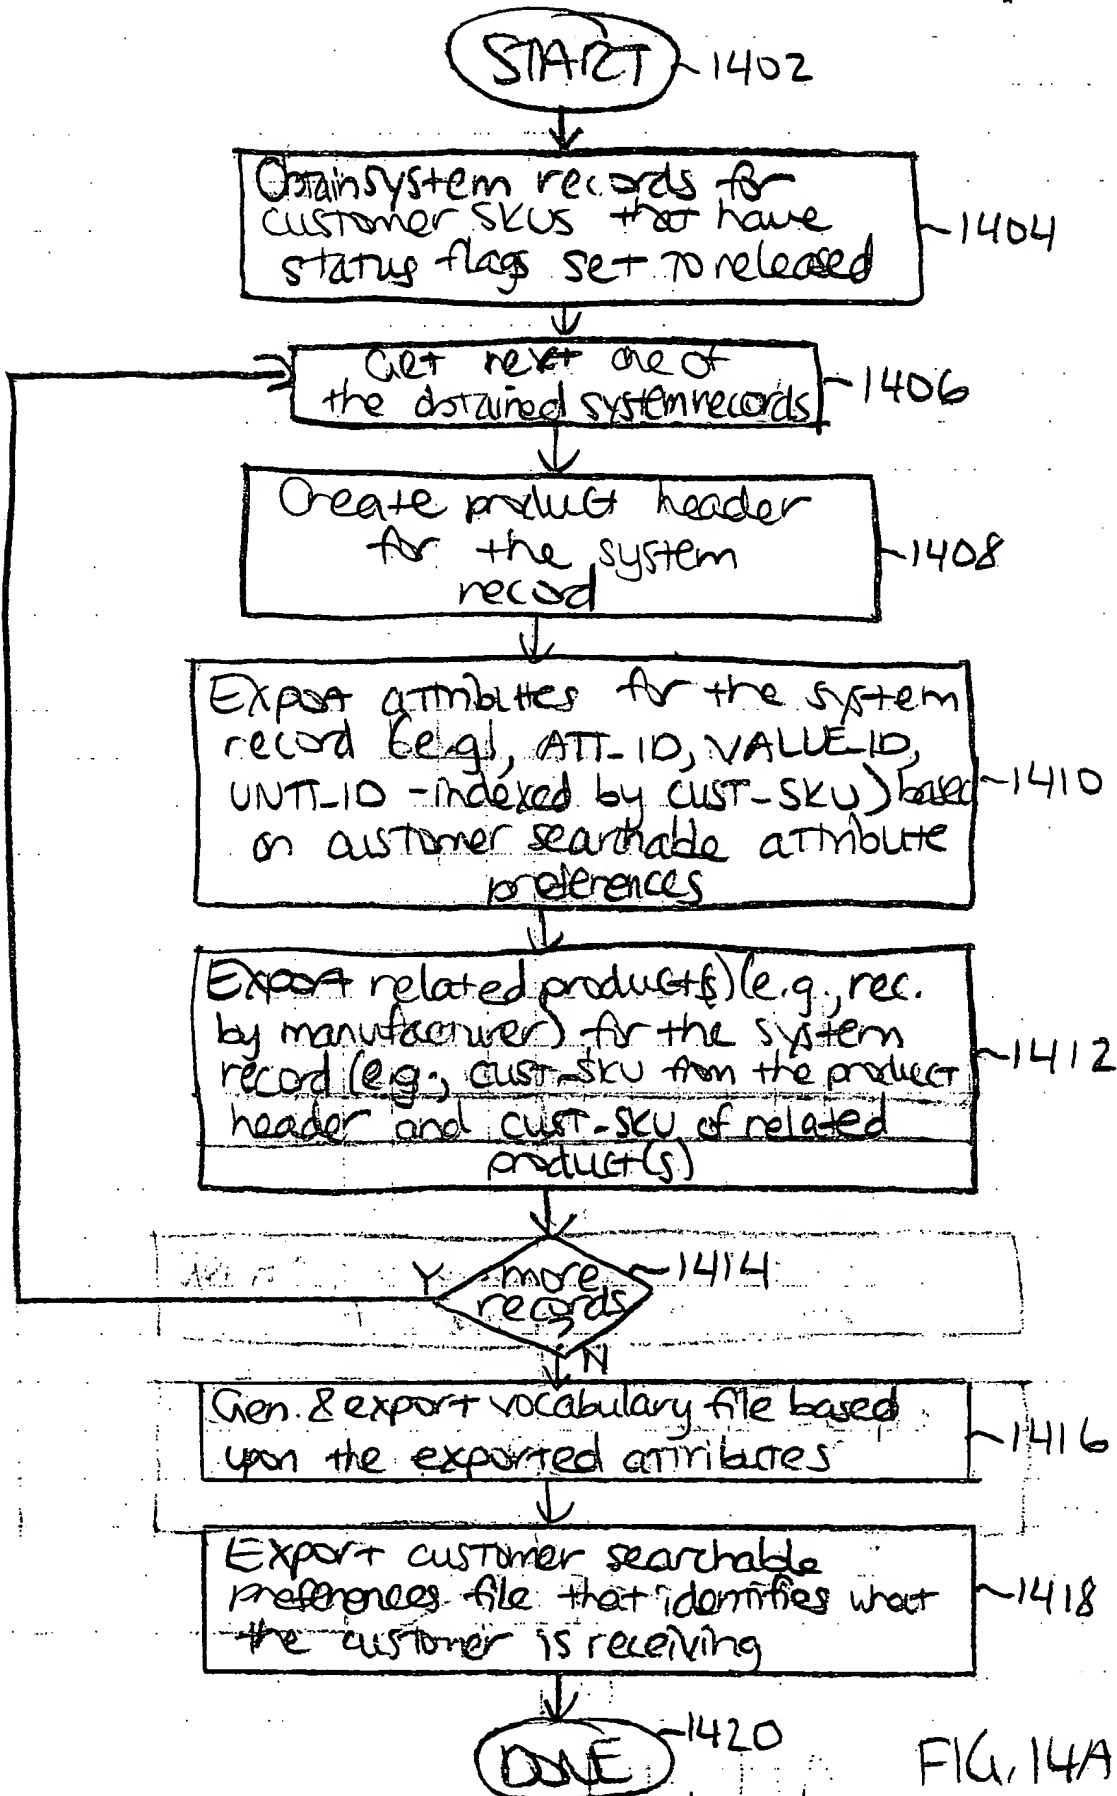 START 1402
Obtain system records for
customer SKUs that have
status flags set to released
1404
Get next one of
the obtained system records
1406
Create product header
for the system
record
1408
Export attributes for the system
record (e.g., ATT_ID, VALUE_ID,
UNIT_ID - indexed by CUST_SKU) based
on customer searchable attribute
preferences
1410
Export related product(s) (e.g., rec.
by manufacturer) for the system
record (e.g., CUST_SKU from the product
header and CUST_SKU of related
product(s)
1412
Y more 1414
records
?
N
Gen. & export vocabulary file based
upon the exported attributes
1416
Export customer searchable
preferences file that identifies what
the customer is receiving
1418
DONE 1420
FIG. 14A